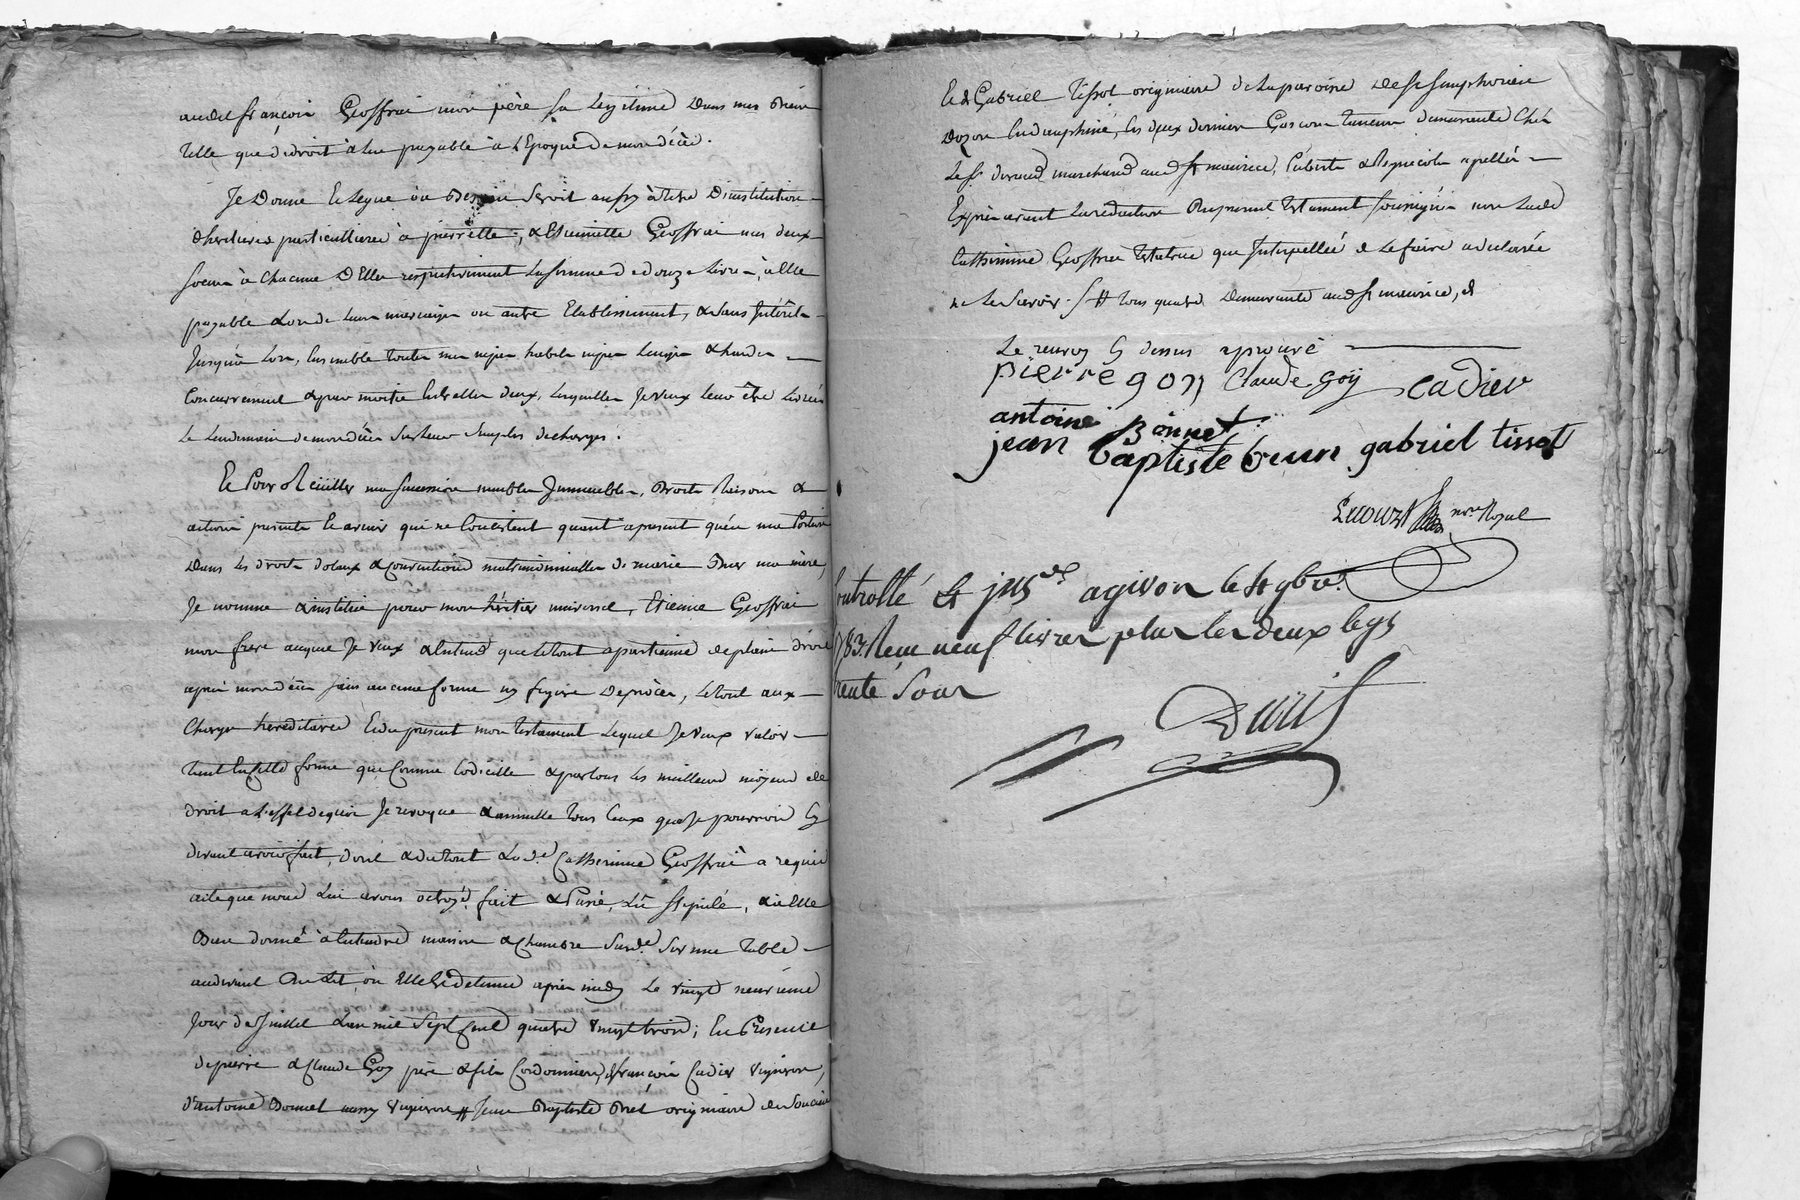 audit françoin Geoffrai mon père sa Legitime Dans mes Biens
telle que de droit à lui payable à L'Epoque de mon décès.
Je Donne et Legue ou Besoin seroit aussy à titre D'institution
d'heritieres particullieres à pierrette, & Etiennette Geoffrai mes deux
soeurs à chacune D'Elles respectivement La somme de douze Livres, à Elle
payable Lors de leurs mariages ou autre Etablissement, & sans Intérêts
Jusqu'à Lors, Ensemble toutes mes nipes habits Linges & hardes
Concurremment & par moitié Entrelles deux, Lesquelles Je veux Leur être Livrés
Le Lendemain de mon décès sur Leurs simples decharges.
Et Pour Recüillir ma succession meubles Jmmeubles, Droits Raisons &
actions presents et avenir qui ne Consistent quant apresent qu'en ma Portion
Dans Les droits dotaux & conventions matrimonialles de marie ma mère,
Je nomme & institue pour mon héritier universel, Etienne Geoffrai
mon frere auquel Je veux & Entends que le tout apartienne de plain droit
après mon décès sans aucune forme ny figure De procès, Le tout aux
Charges hereditaires Et du present mon testament Lequel Je veux valoir
tant En cette forme que Comme Codicille & par tous Les meilleurs moyens de
droit a L'effet de quoi Je revoque & annulle tous Ceux que Je pourrois Cy
devant avoir fait, dont & du tout La de. Catherinne Geoffrai a requis
acte que nous Lui avons octroyé. fait & Passé, Lû & stipulé, & à Elle
Bien donné à Entendre maison & Chambre susd.e sur une table
audevant Du Lit où Elle Est detenue après midy Le vingt neuvieme
Jour de Juillet L'an mil sept Cent quatre vingt trois; En Presence
de pierre & Claude Goy père & fils Cordonniers, françois Cadier vigneron,
d'antoine Bonnet aussy vigneron # Jean Baptiste originaire de
Et de Gabriel Tissot originaire de La paroisse De St Simphorien
Dozon En dauphiné, Les deux derniers Garcons tanneurs demeurants Chés
Le Sr. marchand aud St maurice, témoins & Requis apellés
Exprès avant La redaction Du present testament soussignés non Lad
Catherinne Geoffrai testatrice que Interpellée de Le faire a declarée
ne Le Savoir. # tous quatre Demeurants aud St maurice, &
Le renvoy Cy dessus aprouvé
pierre goy claude goÿ cadier
antoine Bonnet
jean baptiste brun gabriel tissot
nore. Royal
Controllé & jns.é agivors le 4 9bre.
1783 Reçu neuf livres plus les deux legs
trente Sous